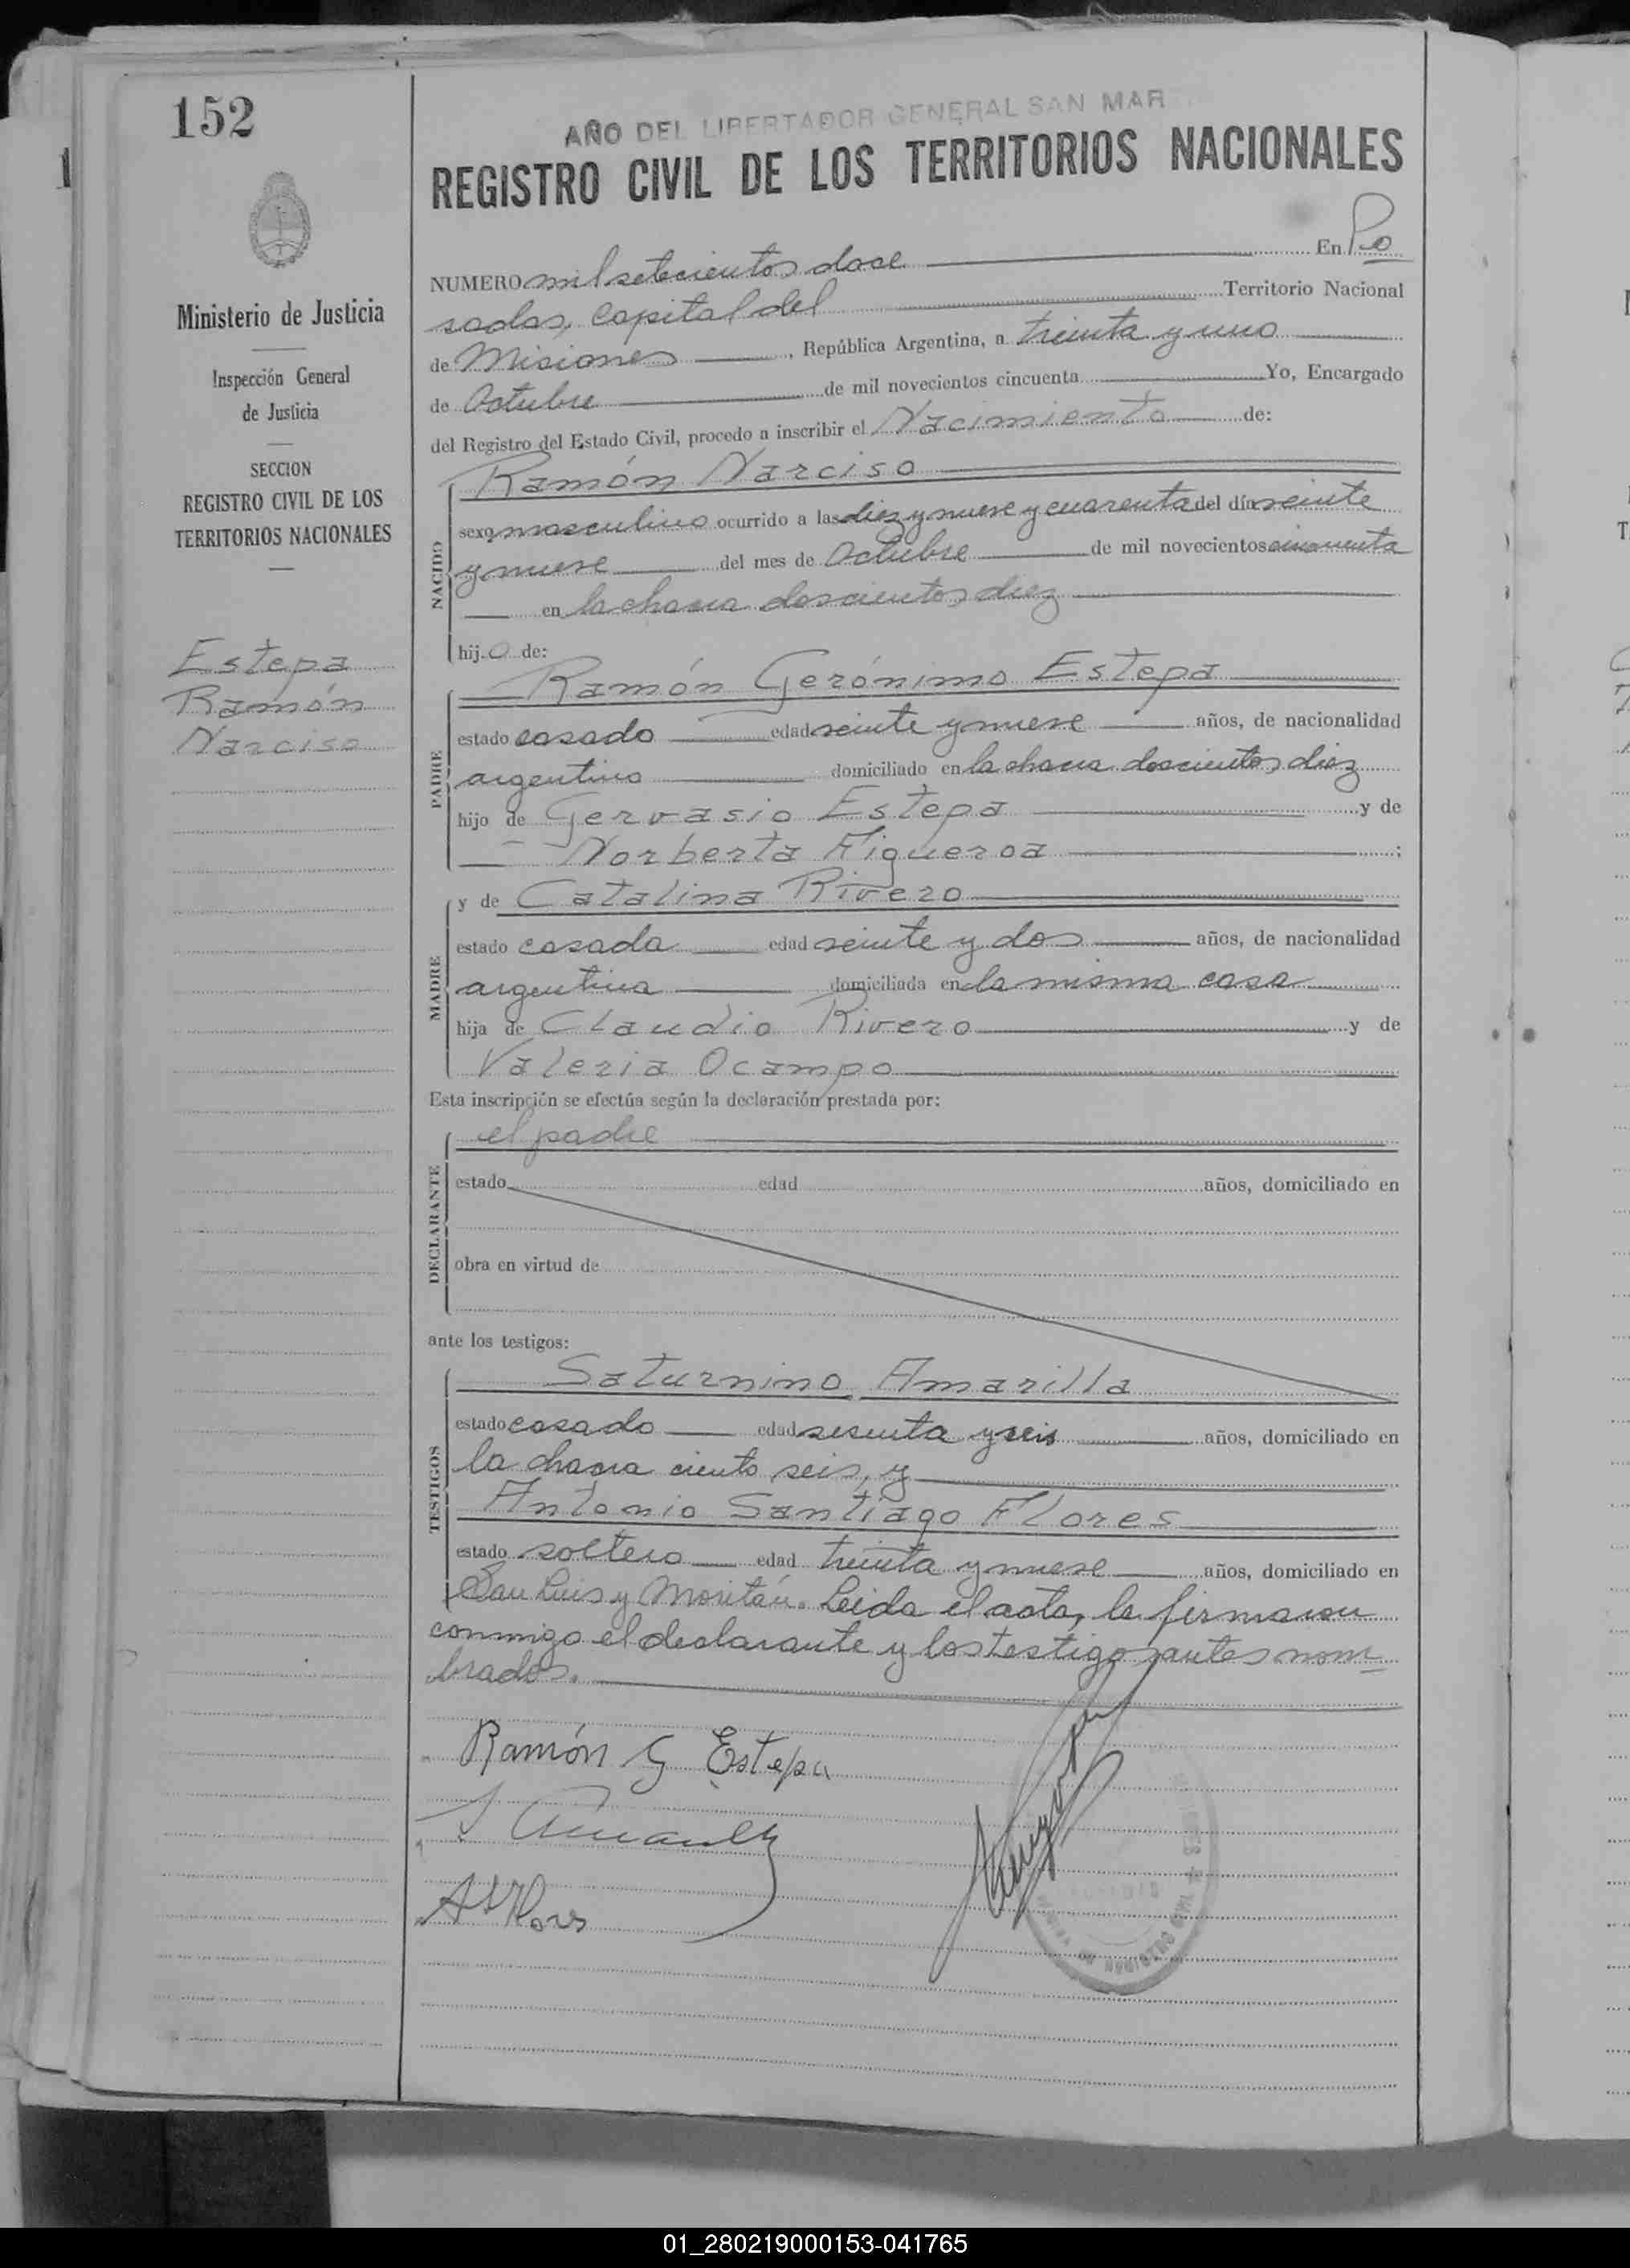 152
Ministerio de Justicia
Inspección General
de Justicia
SECCION
REGISTRO CIVIL DE LOS
TERRITORIOS NACIONALES
Estepa
Ramón
Narciso
AÑO DEL LIBERTADOR GENERAL SAN MAR
REGISTRO CIVIL DE LOS TERRITORIOS NACIONALES
NUMERO mil setecientos doce En Po
sadas, capital del Territorio Nacional
de Misiones, República Argentina, a treinta y uno
de Octubre de mil novecientos cincuenta Yo, Encargado
del Registro del Estado Civil, procedo a inscribir el Nacimiento de:
NACIDO
Ramón Narciso
sexo masculino ocurrido a las diez y nueve y cuarenta del día veinte
y nueve del mes de Octubre de mil novecientos cincuenta
en la chacra doscientos diez
hijo de:
PADRE
Ramón Gerónimo Estepa
estado casado edad veinte y nueve años, de nacionalidad
argentino domiciliado en la chacra doscientos diez
hijo de Gervasio Estepa y de
Norberta Figueroa ;
MADRE
y de Catalina Rivero
estado casada edad veinte y dos años, de nacionalidad
argentina domiciliada en la misma casa
hija de Claudio Rivero y de
Valeria Ocampo
Esta inscripción se efectúa según la declaración prestada por:
DECLARANTE
el padre
estado edad años, domiciliado en
obra en virtud de
ante los testigos:
TESTIGOS
Saturnino Amarilla
estado casado edad sesenta y seis años, domiciliado en
la chacra ciento seis, y
Antonio Santiago Flores
estado soltero edad treinta y nueve años, domiciliado en
San Luis y Moritán. Leida el acta, la firmaron
conmigo el declarante y los testigos antes nom
brados.
Ramón G Estepa
S Amarilla
A S Flores
01_280219000153-041765